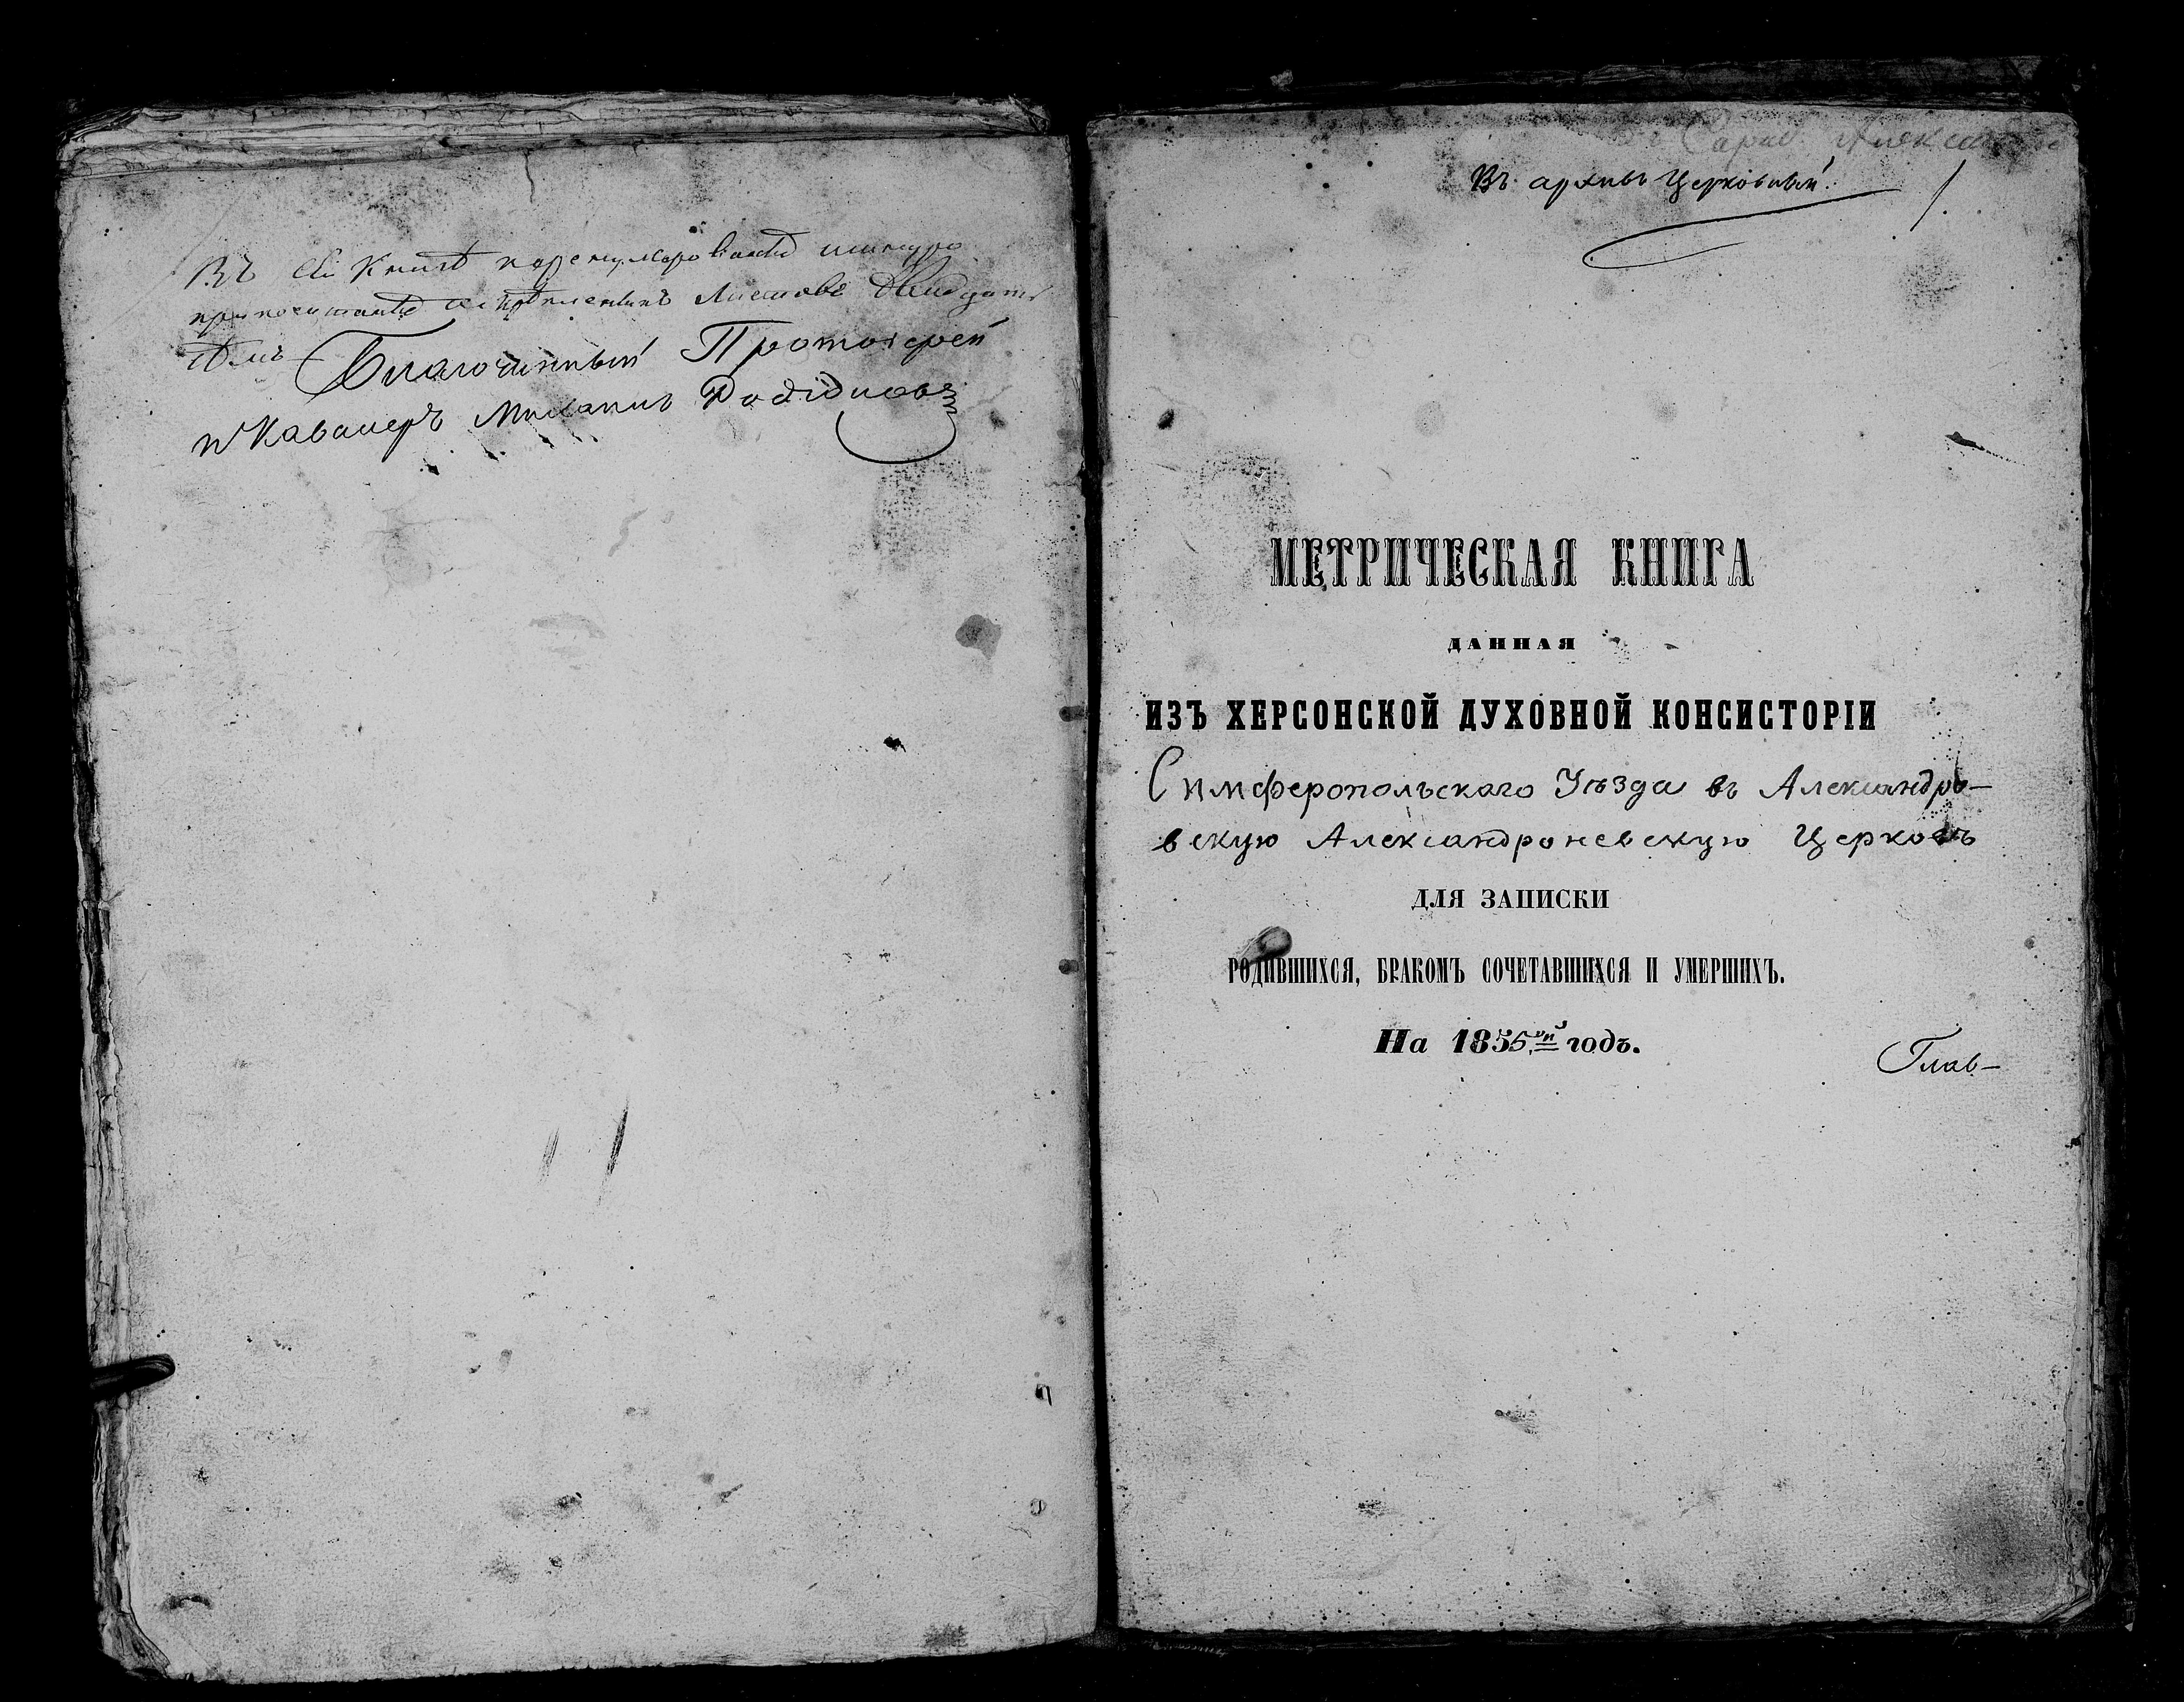 Въ сей Книгѣ перенумерованныхъ шнуро
припечатью скрѣпленныхъ Листовъ двадцать
Благочинный Протоіерей
и Кавалеръ Михаилъ Родіоновъ
Въ архивъ Церковный.
1.
МЕТРИЧЕСКАЯ КНИГА
ДАННАЯ
ИЗЪ ХЕРСОНСКОЙ ДУХОВНОЙ КОНСИСТОРІИ
Симферопольскаго Уѣзда въ Александро-
вскую Александроневскую Церковь
ДЛЯ ЗАПИСКИ
РОДИВШИХСЯ, БРАКОМЪ СОЧЕТАВШИХСЯ И УМЕРШИХЪ.
На 1855.ый годъ.
Глав-